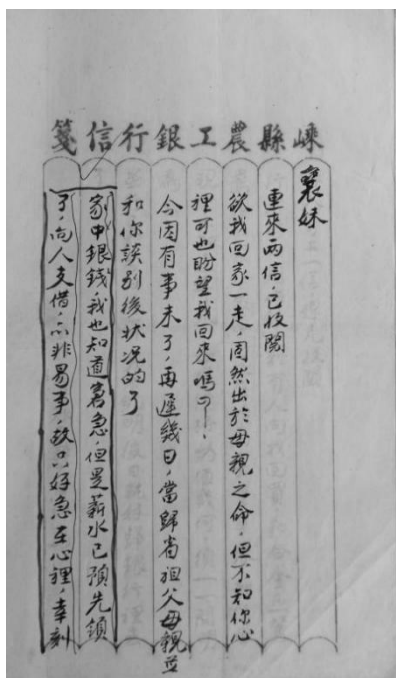 嵊縣農工銀行信箋
襄妹
連來兩信，已收閱
欲我回家一走，固然出於母親之命，但不知你心
裡可也盼望我回來嗎？
今因有事未了，再遲幾日，當歸省祖父母親並
和你談別後狀况的了
家中銀錢，我也知道窘急，但是薪水已預先領
了，向人支借，亦非易事，故只好急在心裡，幸刻